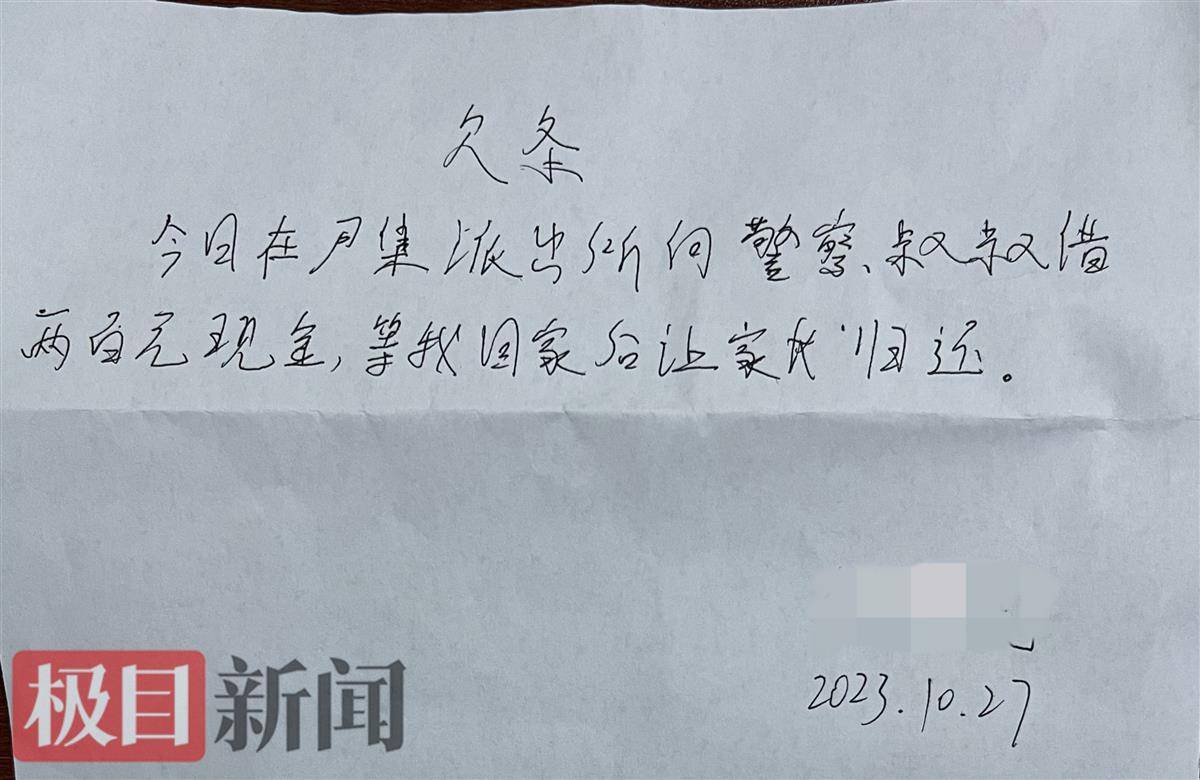 欠条
今日在尹集派出所向警察叔叔借
两百元现金,等我回家后让家长归还。
2023.10.27
极目新闻